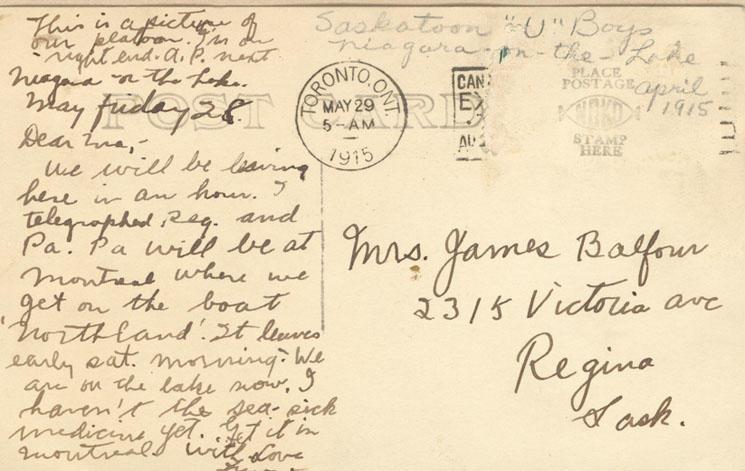 This is a picture of
our platoon. I'm on
right end. A.P. next
Niagara on the Lake.
May friday 28.
Dear Ma,-
We will be leaving
here in an hour. I
telegraphed Reg. and
Pa. Pa will be at
Montreal where we
get on the boat
'Northland'. It leaves
early Sat. morning. We
are on the lake now. I
haven't the sea-sick
medicine yet. Get it in
Montreal. With Love
POST CARD
TORONTO, ONT.
MAY 29
5-AM
1915
CAN
EX
AU
Saskatoon "U" Boys
Niagara-on-the-Lake
April
1915
PLACE
POSTAGE
NOKO
STAMP
HERE
Mrs. James Balfour
2315 Victoria ave
Regina
Sask.